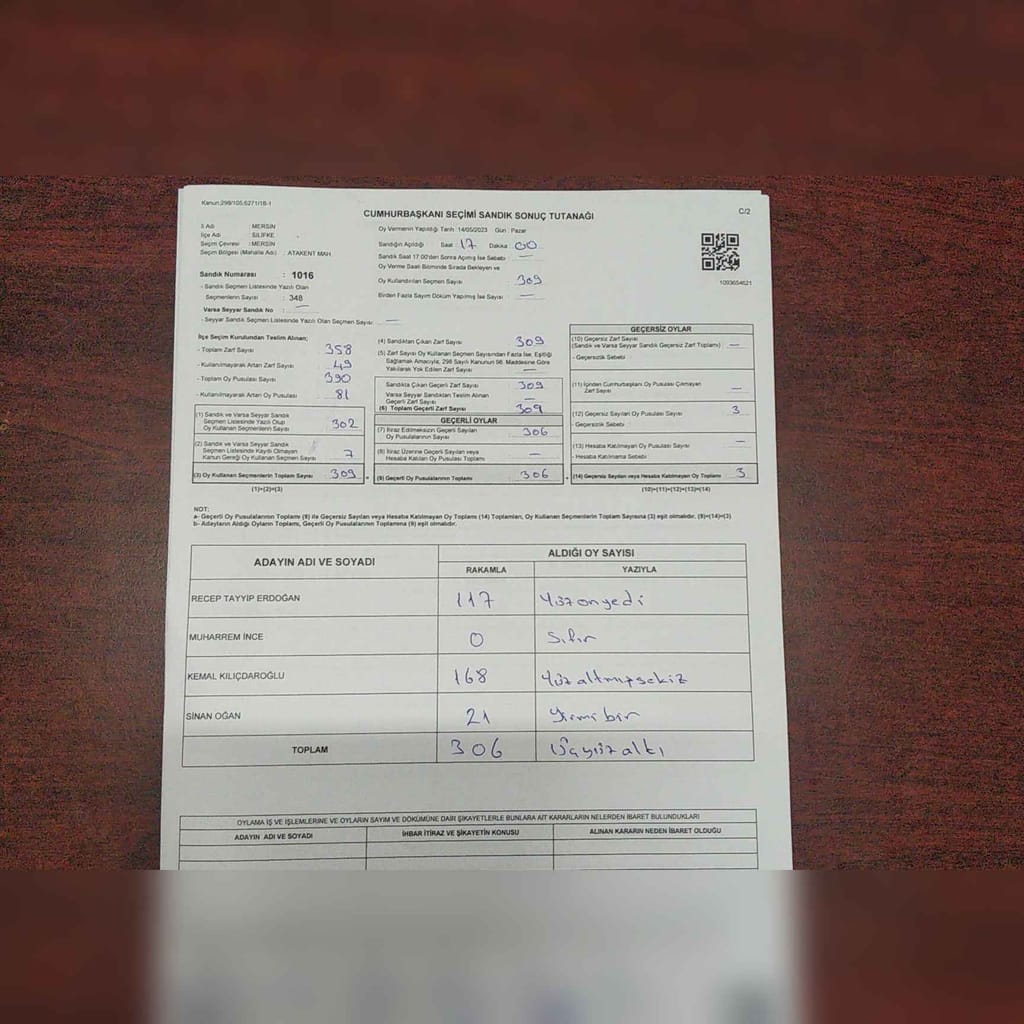 Kanun:298/105,6271/18-1
C/2
CUMHURBAŞKANI SEÇİMİ SANDIK SONUÇ TUTANAĞI
İl Adı : MERSİN
İlçe Adı : SİLİFKE
Seçim Çevresi : MERSİN
Seçim Bölgesi (Mahalle Adı) : ATAKENT MAH.
Sandık Numarası : 1016
- Sandık Seçmen Listesinde Yazılı Olan
Seçmenlerin Sayısı : 348
Varsa Seyyar Sandık No : —
- Seyyar Sandık Seçmen Listesinde Yazılı Olan Seçmen Sayısı : —
Oy Vermenin Yapıldığı Tarih :14/05/2023 Gün : Pazar
Sandığın Açıldığı Saat : 17 Dakika : 00
Sandık Saat 17.00'den Sonra Açılmış İse Sebebi : —
Oy Verme Saati Bitiminde Sırada Bekleyen ve
Oy Kullandırılan Seçmen Sayısı : 309
Birden Fazla Sayım Döküm Yapılmış İse Sayısı : —
1093654621
İlçe Seçim Kurulundan Teslim Alınan;
- Toplam Zarf Sayısı : 358
- Kullanılmayarak Artan Zarf Sayısı : 49
- Toplam Oy Pusulası Sayısı : 390
- Kullanılmayarak Artan Oy Pusulası : 81
(1) Sandık ve Varsa Seyyar Sandık
Seçmen Listesinde Yazılı Olup
Oy Kullanan Seçmenlerin Sayısı : 302
(2) Sandık ve Varsa Seyyar Sandık
Seçmen Listesinde Kayıtlı Olmayan
Kanun Gereği Oy Kullanan Seçmen Sayısı : 7
(3) Oy Kullanan Seçmenlerin Toplam Sayısı : 309 =
(1)+(2)=(3)
(4) Sandıktan Çıkan Zarf Sayısı : 309
(5) Zarf Sayısı Oy Kullanan Seçmen Sayısından Fazla İse, Eşitliği
Sağlamak Amacıyla, 298 Sayılı Kanunun 98. Maddesine Göre
Yakılarak Yok Edilen Zarf Sayısı : —
Sandıkta Çıkan Geçerli Zarf Sayısı : 309
Varsa Seyyar Sandıktan Teslim Alınan
Geçerli Zarf Sayısı : —
(6) Toplam Geçerli Zarf Sayısı : 309
GEÇERLİ OYLAR
(7) İtiraz Edilmeksizin Geçerli Sayılan
Oy Pusulalarının Sayısı : 306
(8) İtiraz Üzerine Geçerli Sayılan veya
Hesaba Katılan Oy Pusulası Toplamı : —
(9) Geçerli Oy Pusulalarının Toplamı : 306 +
GEÇERSİZ OYLAR
(10) Geçersiz Zarf Sayısı
(Sandık ve Varsa Seyyar Sandık Geçersiz Zarf Toplamı) : —
- Geçersizlik Sebebi :
(11) İçinden Cumhurbaşkanı Oy Pusulası Çıkmayan
Zarf Sayısı : —
(12) Geçersiz Sayılan Oy Pusulası Sayısı : 3
- Geçersizlik Sebebi :
(13) Hesaba Katılmayan Oy Pusulası Sayısı : —
- Hesaba Katılmama Sebebi :
(14) Geçersiz Sayılan veya Hesaba Katılmayan Oy Toplamı : 3
(10)+(11)+(12)+(13)=(14)
NOT:
a- Geçerli Oy Pusulalarının Toplamı (9) ile Geçersiz Sayılan veya Hesaba Katılmayan Oy Toplamı (14) Toplamları, Oy Kullanan Seçmenlerin Toplam Sayısına (3) eşit olmalıdır. (9)+(14)=(3)
b- Adayların Aldığı Oyların Toplamı, Geçerli Oy Pusulalarının Toplamına (9) eşit olmalıdır.
ADAYIN ADI VE SOYADI
ALDIĞI OY SAYISI
RAKAMLA YAZIYLA
RECEP TAYYİP ERDOĞAN 117 Yüzonyedi
MUHARREM İNCE 0 Sıfır
KEMAL KILIÇDAROĞLU 168 Yüz altmışsekiz
SİNAN OĞAN 21 Yirmibir
TOPLAM 306 Üçyüzaltı
OYLAMA İŞ VE İŞLEMLERİNE VE OYLARIN SAYIM VE DÖKÜMÜNE DAİR ŞİKAYETLERLE BUNLARA AİT KARARLARIN NELERDEN İBARET BULUNDUKLARI
ADAYIN ADI VE SOYADI İHBAR İTİRAZ VE ŞİKAYETİN KONUSU ALINAN KARARIN NEDEN İBARET OLDUĞU